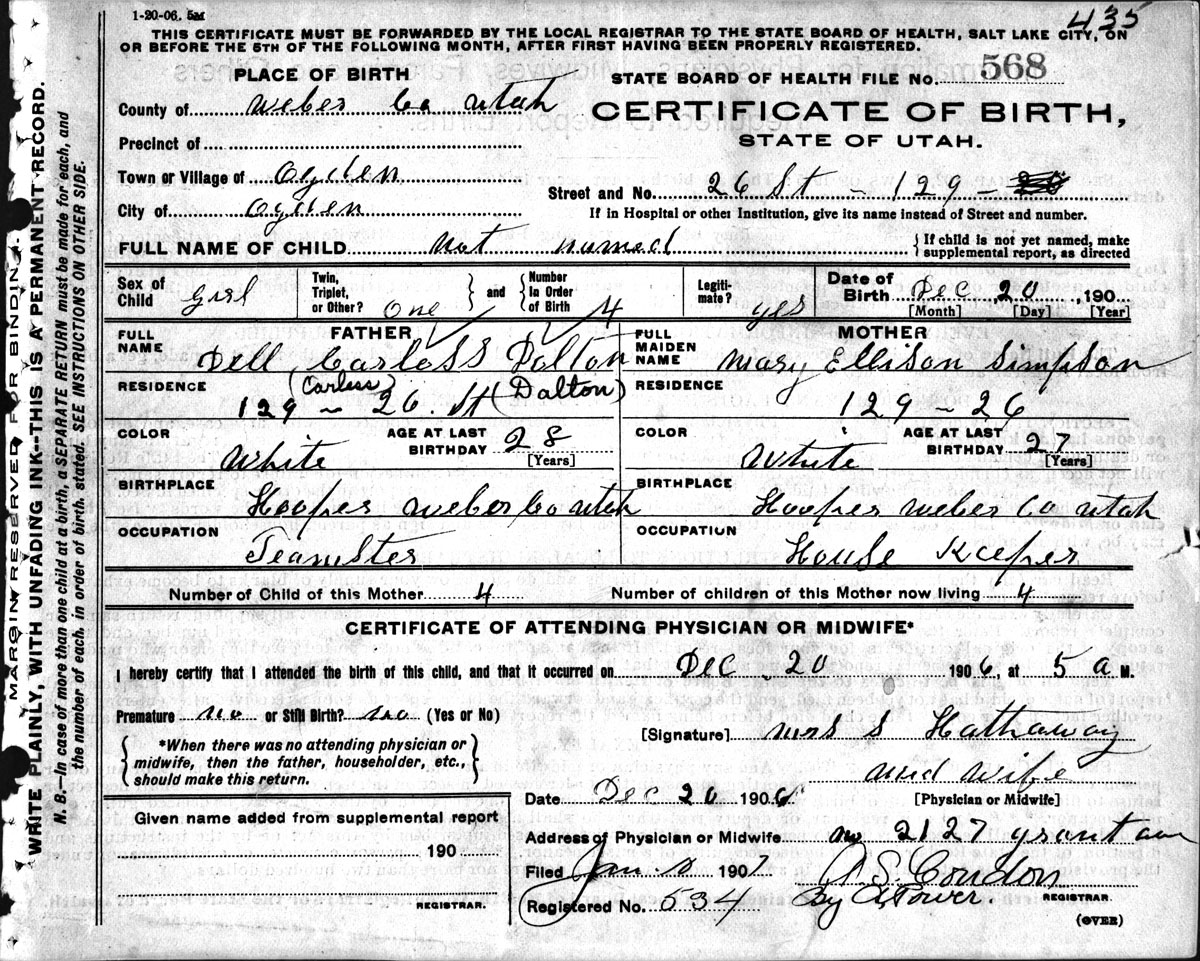 1-20-06. 5M
435
THIS CERTIFICATE MUST BE FORWARDED BY THE LOCAL REGISTRAR TO THE STATE BOARD OF HEALTH, SALT LAKE CITY, ON
OR BEFORE THE 5TH OF THE FOLLOWING MONTH, AFTER FIRST HAVING BEEN PROPERLY REGISTERED.
PLACE OF BIRTH
STATE BOARD OF HEALTH FILE No. 568
County of Weber Co Utah
CERTIFICATE OF BIRTH,
STATE OF UTAH.
Precinct of
Town or Village of Ogden
Street and No. 26 St - 129 -
City of Ogden
If in Hospital or other Institution, give its name instead of Street and number.
FULL NAME OF CHILD not named
{If child is not yet named, make
supplemental report, as directed
Sex of Child girl
Twin, Triplet, or Other? One } and { Number In Order of Birth 4
Legiti-mate? yes
Date of Birth Dec 20, 190
[Month] [Day] [Year]
FATHER
FULL NAME Dell Carloss Dolton
(Carliss) (Dalton)
RESIDENCE 129 - 26. St
COLOR White
AGE AT LAST BIRTHDAY 28
[Years]
BIRTHPLACE Hooper Weber Co Utah
OCCUPATION Teamster
MOTHER
FULL MAIDEN NAME Mary Ellison Simpson
RESIDENCE 129 - 26
COLOR White
AGE AT LAST BIRTHDAY 27
[Years]
BIRTHPLACE Hooper Weber Co Utah
OCCUPATION House Keeper
Number of Child of this Mother 4
Number of children of this Mother now living 4
CERTIFICATE OF ATTENDING PHYSICIAN OR MIDWIFE*
I hereby certify that I attended the birth of this child, and that it occurred on Dec 20 1906, at 5 a M.
Premature no or Still Birth? no (Yes or No)
[Signature] Mrs S Hathaway
{ *When there was no attending physician or
midwife, then the father, householder, etc.,
should make this return. }
Mid wife
[Physician or Midwife]
Date Dec 20 1906
Given name added from supplemental report
190
REGISTRAR.
Address of Physician or Midwife 2127 Grant ave
Filed Jan. 1907
A. S. Condon
REGISTRAR.
By A Tower.
Registered No. 534
(OVER)
MARGIN RESERVED FOR BINDING.
WRITE PLAINLY, WITH UNFADING INK--THIS IS A PERMANENT RECORD.
N. B.—In case of more than one child at a birth, a SEPARATE RETURN must be made for each, and
the number of each, in order of birth, stated. SEE INSTRUCTIONS ON OTHER SIDE.